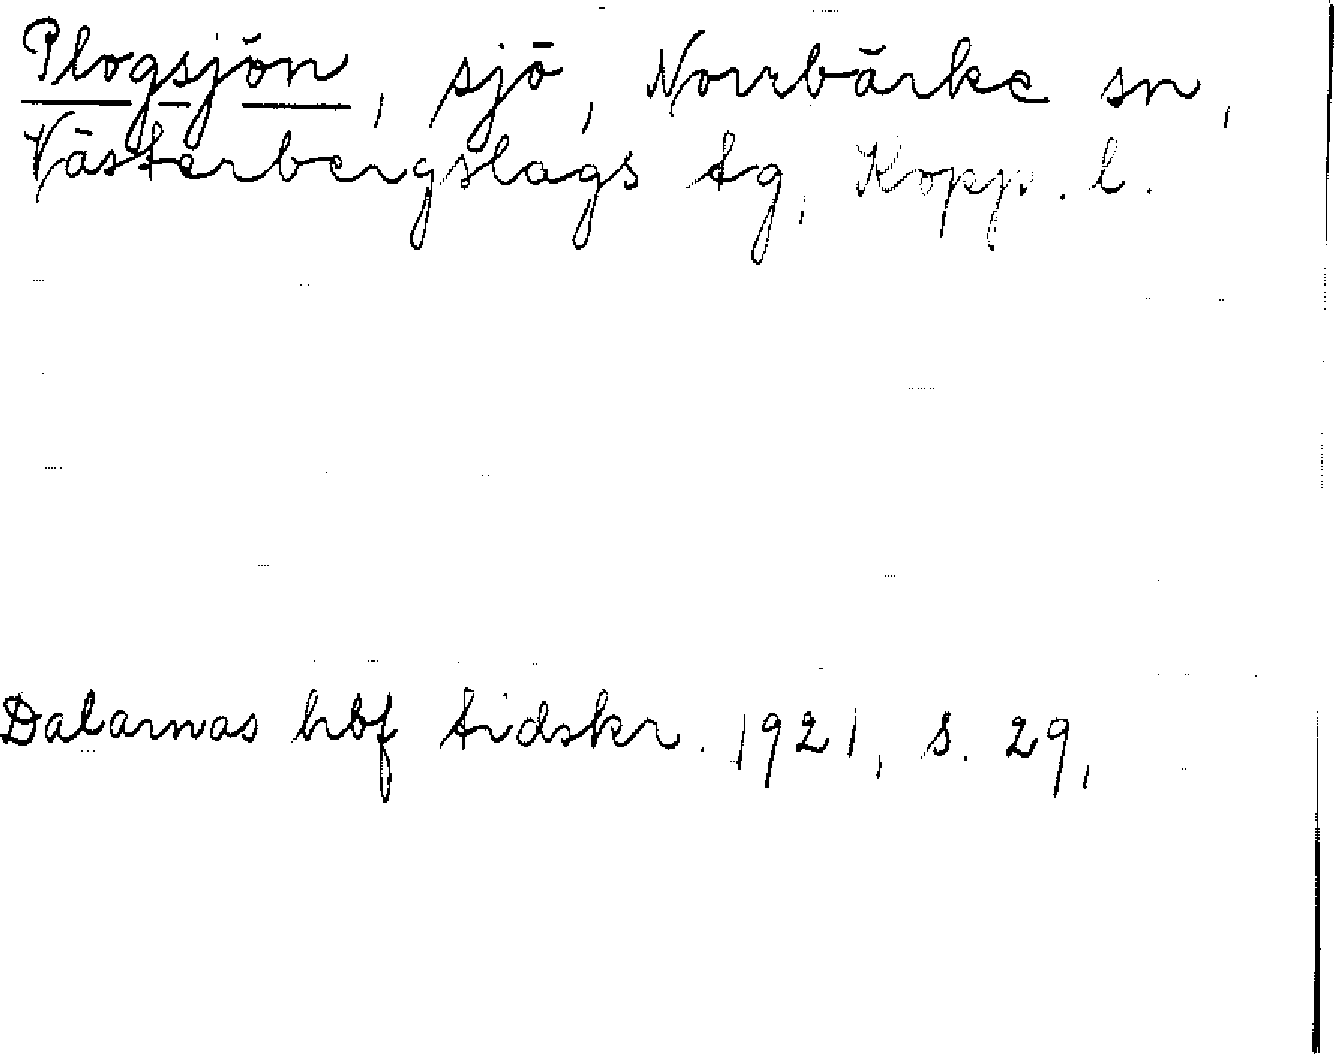 Plogsjön, sjö, Norrbärke sn,
Västerbergslags tg, Kopp. l.
Dalarnas hbf tidskr. 1921, s. 29,